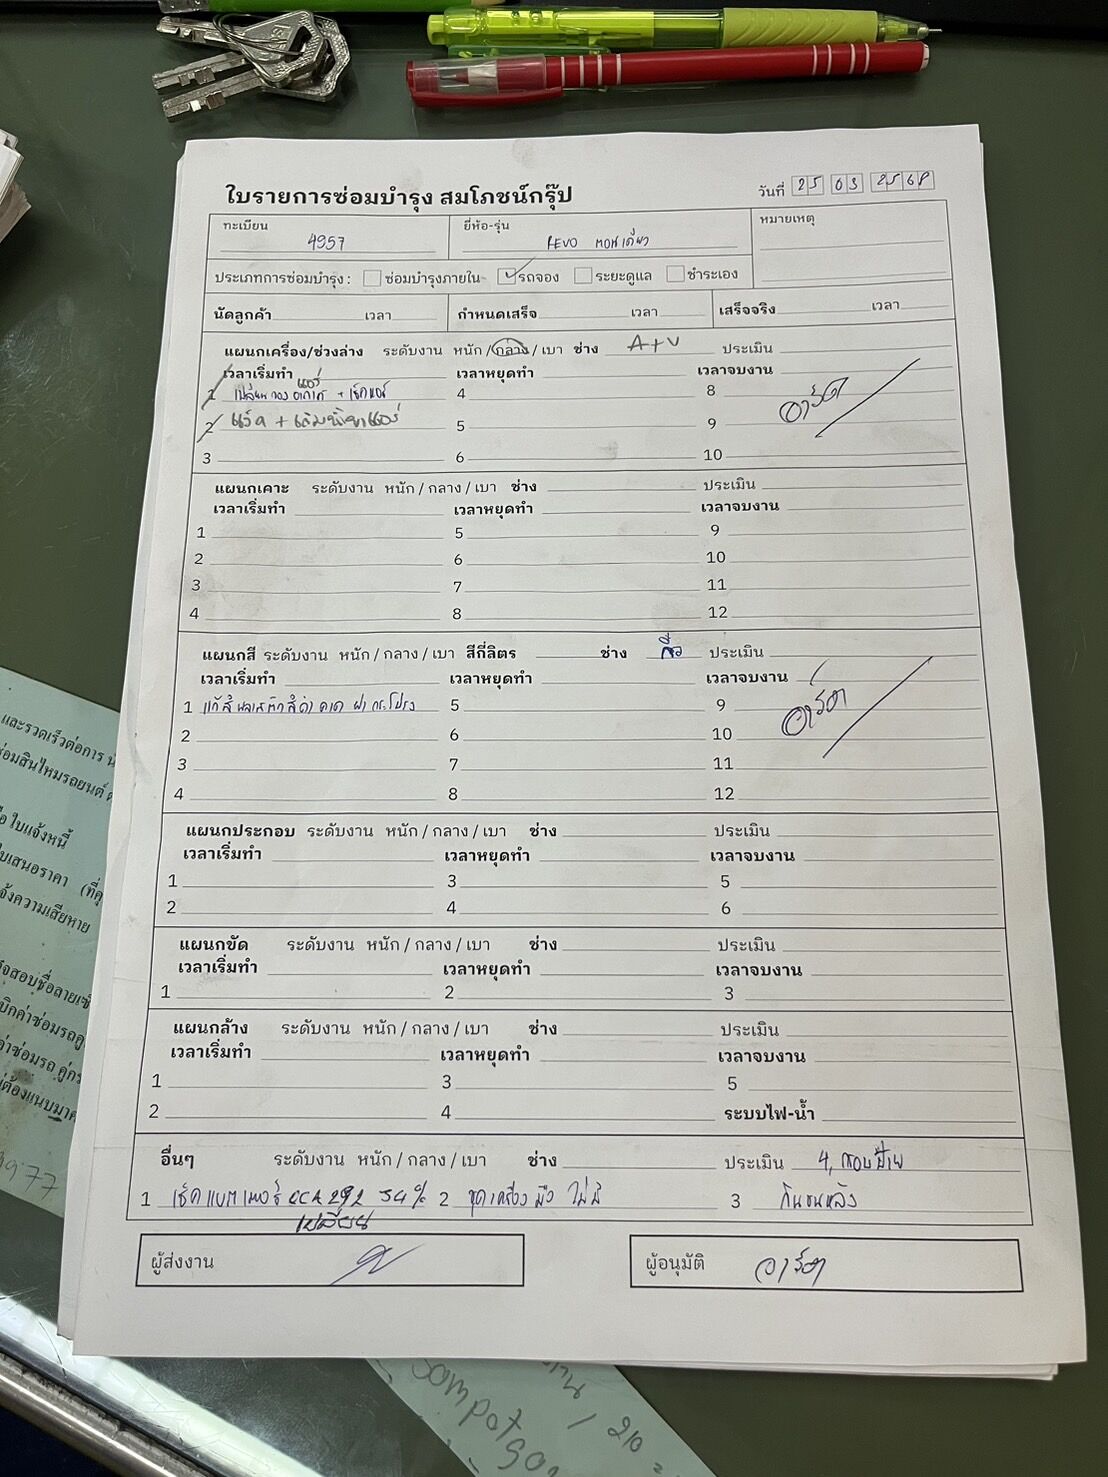 ใบรายการซ่อมบำรุง สมโภชน์กรุ๊ป
วันที่ 25 03 2568
ทะเบียน 4957
ยี่ห้อ-รุ่น REVO ตอนเดียว
หมายเหตุ
ประเภทการซ่อมบำรุง : ซ่อมบำรุงภายใน รถจอง ระยะดูแล ชำระเอง
นัดลูกค้า เวลา กำหนดเสร็จ เวลา เสร็จจริง เวลา
แผนกเครื่อง/ช่วงล่าง ระดับงาน หนัก / กลาง / เบา ช่าง A+V ประเมิน
เวลาเริ่มทำ เวลาหยุดทำ เวลาจบงาน
1 เปลี่ยนกรองอากาศแอร์ + เช็คแอร์ 4 8
2 + เติมน้ำยาแอร์ 5 9
3 6 10
แผนกเคาะ ระดับงาน หนัก / กลาง / เบา ช่าง ประเมิน
เวลาเริ่มทำ เวลาหยุดทำ เวลาจบงาน
1 5 9
2 6 10
3 7 11
4 8 12
แผนกสี ระดับงาน หนัก / กลาง / เบา สีกี่ลิตร ช่าง ประเมิน
เวลาเริ่มทำ เวลาหยุดทำ เวลาจบงาน
1 ฝากระโปรง 5 9
2 6 10
3 7 11
4 8 12
แผนกประกอบ ระดับงาน หนัก / กลาง / เบา ช่าง ประเมิน
เวลาเริ่มทำ เวลาหยุดทำ เวลาจบงาน
1 3 5
2 4 6
แผนกขัด ระดับงาน หนัก / กลาง / เบา ช่าง ประเมิน
เวลาเริ่มทำ เวลาหยุดทำ เวลาจบงาน
1 2 3
แผนกล้าง ระดับงาน หนัก / กลาง / เบา ช่าง ประเมิน
เวลาเริ่มทำ เวลาหยุดทำ เวลาจบงาน
1 3 5
2 4 ระบบไฟ-น้ำ
อื่นๆ ระดับงาน หนัก / กลาง / เบา ช่าง ประเมิน 4,
1 เช็คแบตเตอรี่ CCA 292 34% 2 ชุดเครื่องมือ ไม่มี 3 กันชนหลัง
เปลี่ยน
ผู้ส่งงาน
ผู้อนุมัติ
และรวดเร็วต่อการ
ซ่อมสินไหมรถยนต์
ใบแจ้งหนี้
ใบเสนอราคา
แจ้งความเสียหาย
sompot